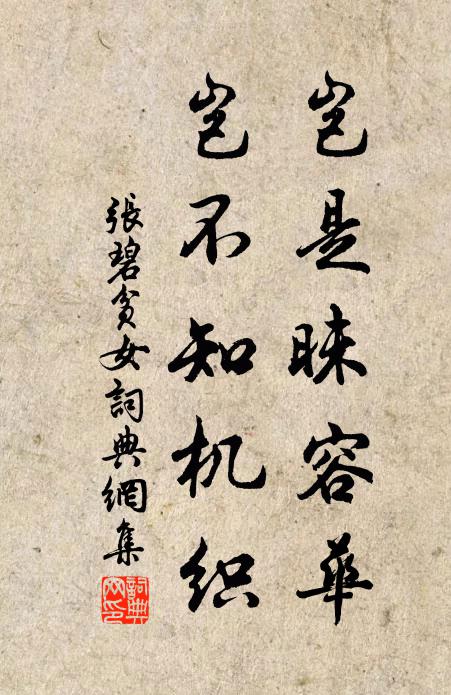 岂是昧容華
岂不知机织
張碧貧女詞典網集
詞典网印